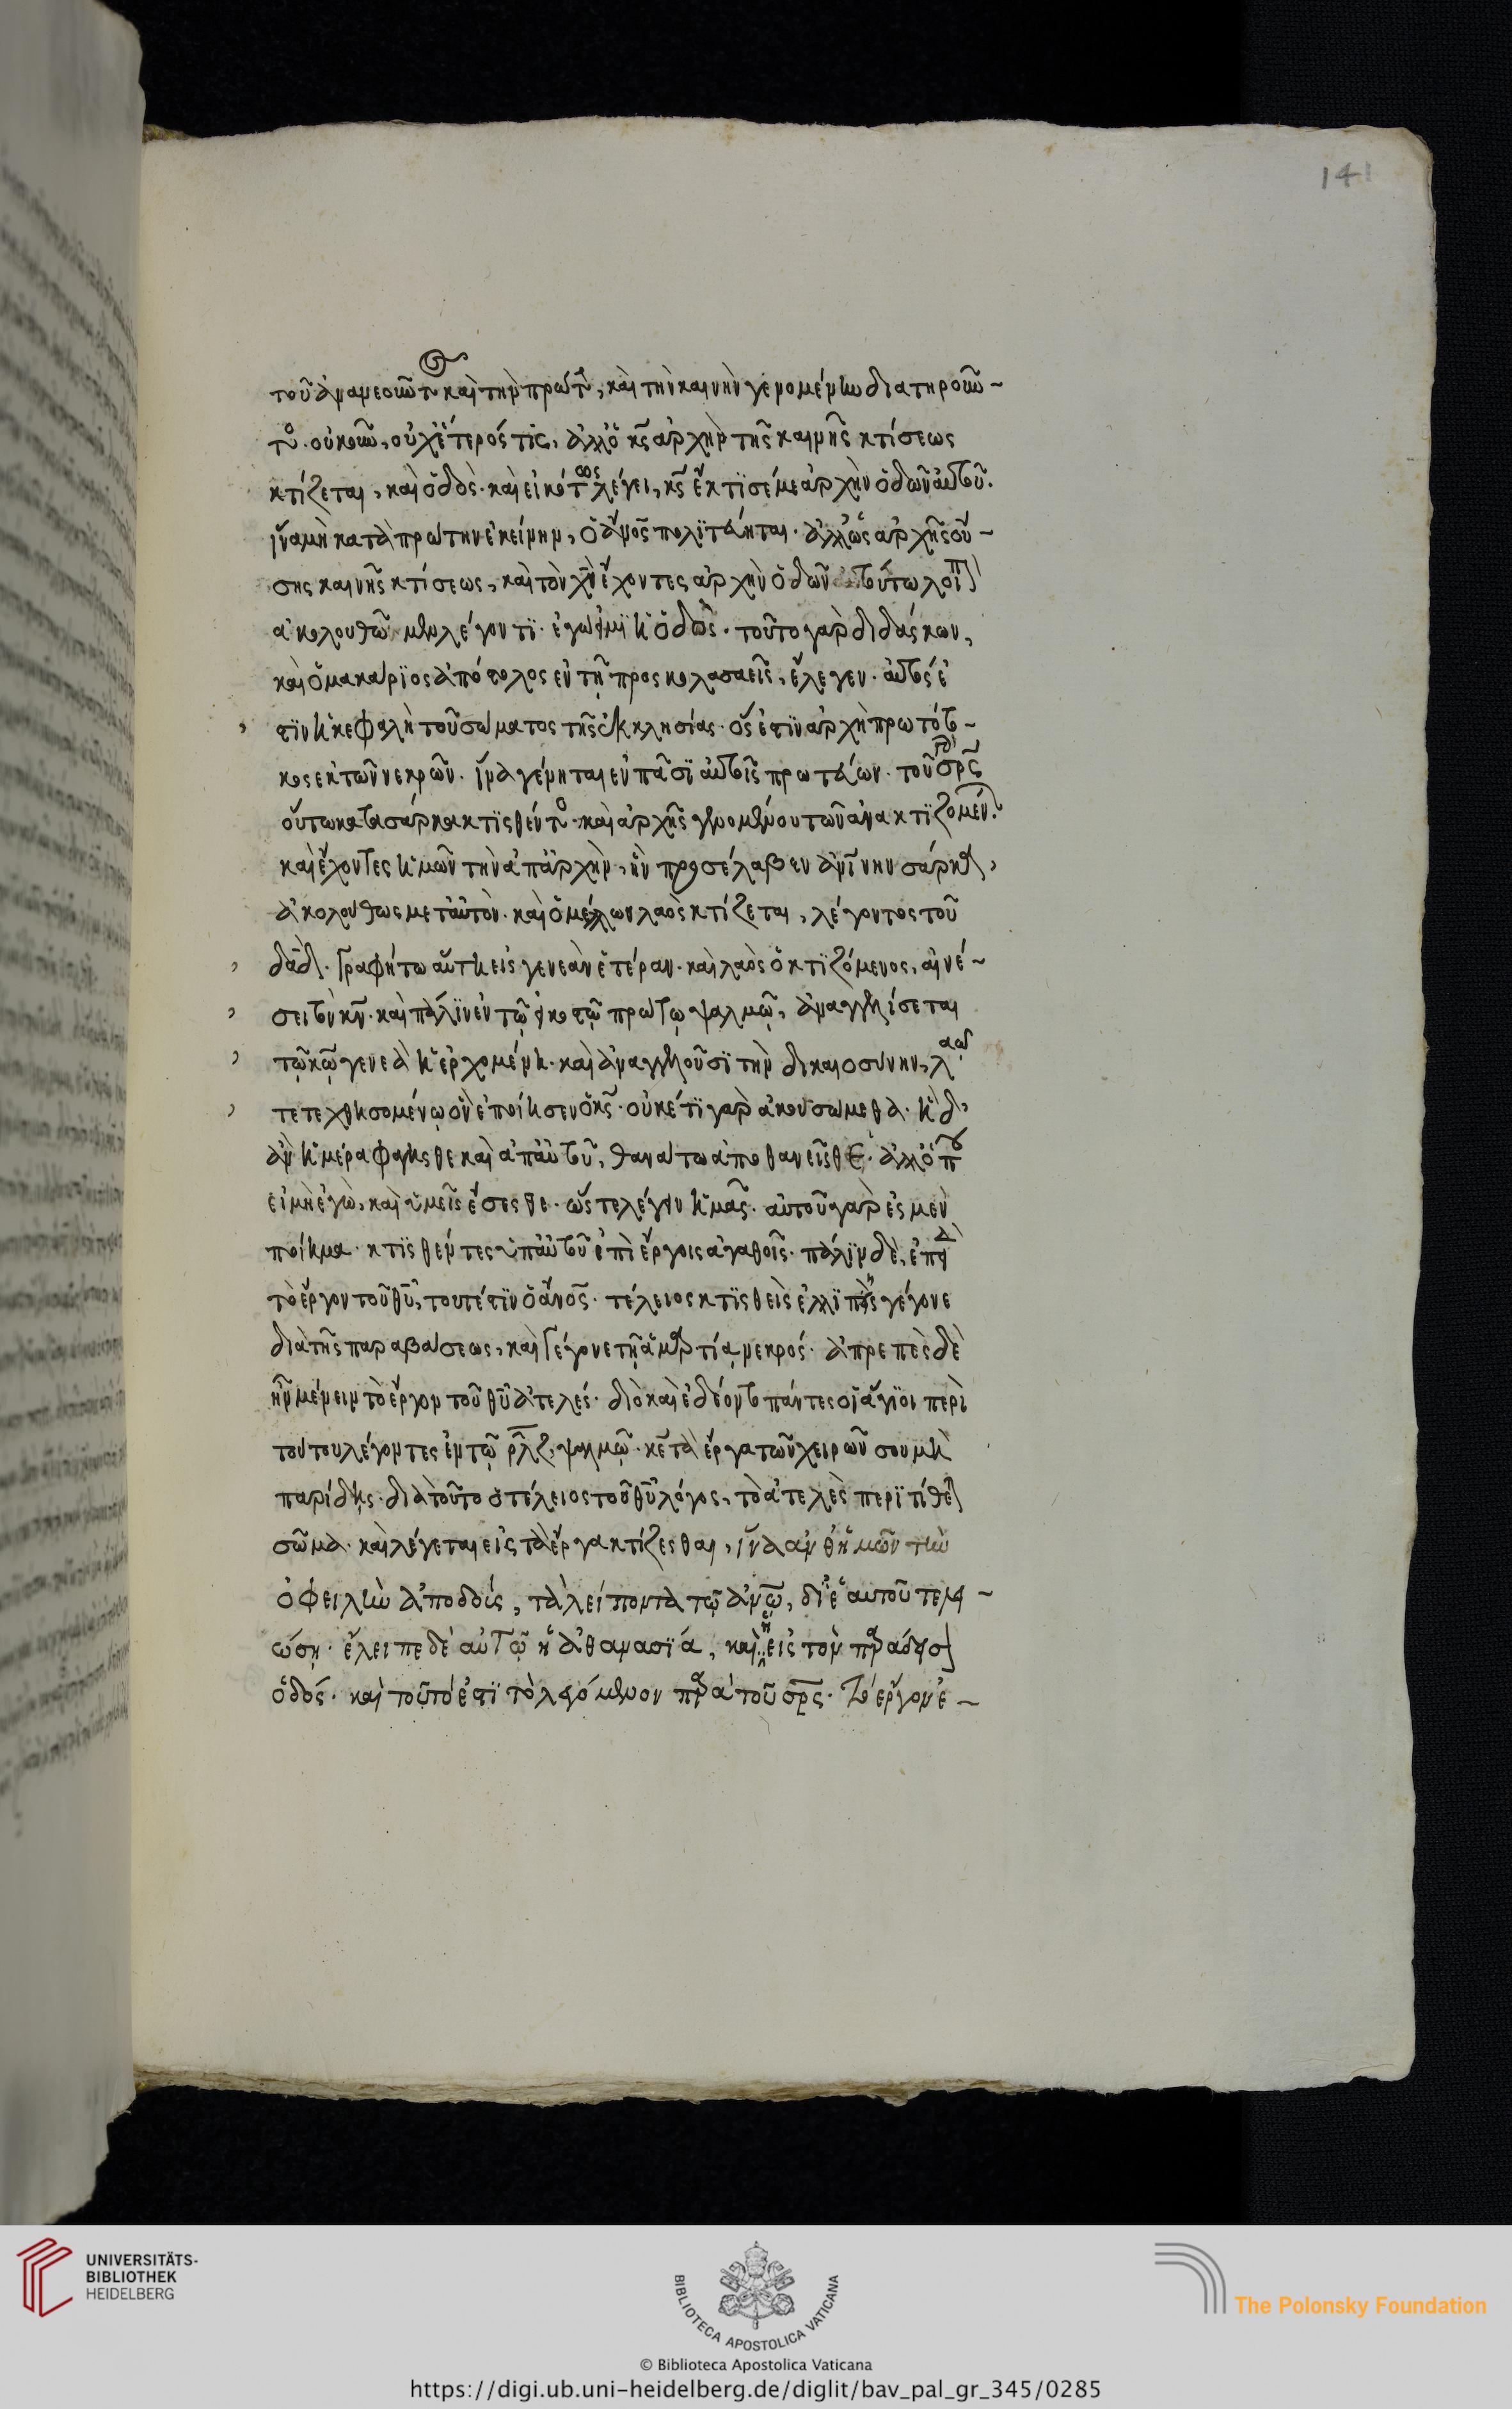 141
τοῦ ἀνανεοῦντος καὶ τὴν πρώτην, καὶ τὴν καινὴν γενομένην διατηροῦν-
τος. οὐκοῦν, οὐχ ἕτερός τις, ἀλλ' ὁ κ̅ς̅ ἀρχὴν τῆς καινῆς κτίσεως
κτίζεται, καὶ ὁδὸς· καὶ εἰκότως λέγει, κ̅ς̅ ἔκτϊσέ με ἀρχὴν ὁδῶν αὐτοῦ.
ἵνα μὴ κατὰ πρώτην ἐκείνην, ὁ ἄν̅ο̅ς̅ πολϊτεύηται. ἀλλ' ὡς ἀρχῆς οὔ-
σης καινῆς κτίσεως, καὶ τὸν χ̅ν̅ ἔχοντες ἀρχὴν ὁδῶν αὐτοῦ τούτω λοιπ
ἀκολουθῶμεν λέγοντϊ· ἐγώ εἰμϊ ἡ ὁδός. τοῦτο γὰρ διδάσκων,
καὶ ὁ μακάρϊος ἀπόστολος ἐν τῇ προς κολασαεῖς, ἔλεγεν· αὐτός ἐ
στϊν ἡ κεφαλὴ τοῦ σώματος τῆς ἐκκλησίας· ὅς ἐστϊν ἀρχὴ πρωτότο-
κος ἐκ τῶν νεκρῶν. ἵνα γένηται ἐν πᾶσϊ αὐτὸς πρωτεύων. τοῦ σ̅ρ̅ς̅
οὕτω κατὰ σάρκα κτϊσθέντος· καὶ ἀρχῆς γενομένου τῶν ἀνακτϊζομέν.
καὶ ἔχοντες ἡμῶν τὴν ἀπαρχὴν, ἣν προσέλαβεν ἀνϊνην σάρκα,
ἀκολούθως μετ' αὐτὸν· καὶ ὁ μέλλων λαὸς κτίζεται, λέγοντος τοῦ
δ̅α̅δ̅. Γραφήτω αὕτη εἰς γενεὰν ἑτέραν· καὶ λαὸς ὁ κτϊζόμενος, αἰνέ-
σει τὸν κ̅ν̅. καὶ πάλϊν ἐν τῷ εἰκοστῷ πρώτω ψαλμῷ, ἀναγγελήσεται
τῷ κ̅ω̅ γενεὰ ἡ ἐρχομένη· καὶ ἀναγγελοῦσϊ τὴν δικαιοσύνην, λαῷ
τε τεχθησομένῳ ὃν ἐποίησεν ὁ κ̅ς̅. οὐκέτϊ γὰρ ἀκουσώμεθα· ἧ δ'
ἂν ἡμέρα φάγησθε καὶ ἀπ' αὐτοῦ, θανάτω ἀποθανεῖσθε. ἀλλ' ὅπου
εἰμὴ ἐγὼ, καὶ ὑμεῖς ἔσεσθε. ὥς τε λέγειν ἡμᾶς. αὐτοῦ γὰρ ἐσμεν
ποίημα. κτϊσθέντες ὑπ' αὐτοῦ ἐπὶ ἔργοις ἀγαθοῖς. πάλϊν δὲ, ἐπειδὴ
τὸ ἔργον τοῦ θ̅υ̅, τουτέστϊν ὁ ἄν̅ο̅ς̅. τέλειος κτϊσθεὶς ἐλλϊπὴς γέγονε
διὰ τῆς παραβάσεως, καὶ Γέγονε τῇ ἁμαρτίᾳ νεκρός. ἀπρεπὲς δὲ
ἦν μένειν τὸ ἔργον τοῦ θ̅υ̅ ἀτελές. διὸ καὶ ἐδέοντο πάντες οἱ ἅγϊοι περὶ
τούτου λέγοντες ἐν τῷ ρ̅λ̅ζ̅. ψαλμῷ. κ̅ε̅ τὰ ἔργα τῶν χειρῶν σου μὴ
παρίδῃς. διὰ τοῦτο ὁ τέλειος τοῦ θ̅υ̅ λόγος, τὸ ἀτελὲς περϊτίθε
σῶμα. καὶ λέγεται εἰς τὰ ἔργα κτίζεσθαι, ἵνα ἀνθ' ἡμῶν τὴν
ὀφειλὴν ἀποδοὺς, τὰ λείποντα τῷ ἀν̅ω̅, δι' ἑαυτοῦ τελει-
ώσῃ. ἔλειπε δὲ αὐτῷ ἡ ἀθανασϊά, καὶ ἡ εἰς τὸν παράδεισ
ὁδός. καὶ τοῦτό ἐστϊ τὸ λεγόμενον παρὰ τοῦ σ̅ρ̅ς̅. Τὸ ἔργον ἐ-
UNIVERSITÄTS-
BIBLIOTHEK
HEIDELBERG
BIBLIOTECA APOSTOLICA VATICANA
The Polonsky Foundation
© Biblioteca Apostolica Vaticana
https://digi.ub.uni-heidelberg.de/diglit/bav_pal_gr_345/0285